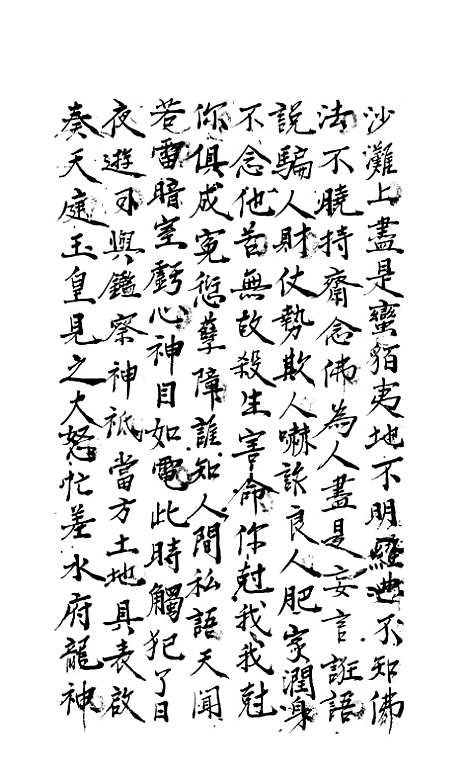 沙灘上盡是蠻貊夷地不明經典不知佛
法不曉持齋念佛為人盡是妄言誑語
說騙人財仗勢欺人嚇詐良人肥家潤身
不念他苦無故殺生害命你尅我我尅
你俱成冤愆孽障誰知人間私語天聞
若雷暗室虧心神目如電此時觸犯了日
夜遊司與鑑察神祇當方土地具表啟
奏天庭玉皇見之大怒忙差水府龍神